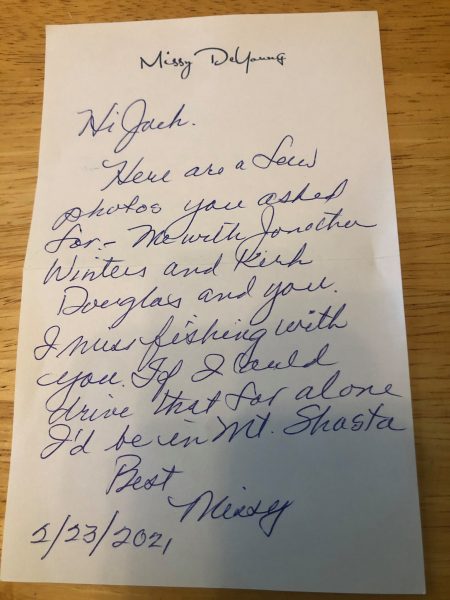 Missy DeYoung
Hi Jack.
Here are a few
photos you asked
for - Me with Jonathan
Winters and Kirk
Douglas and you.
I miss fishing with
you. If I could
drive that far alone
I'd be in Mt. Shasta
Best
Missy
2/23/2021